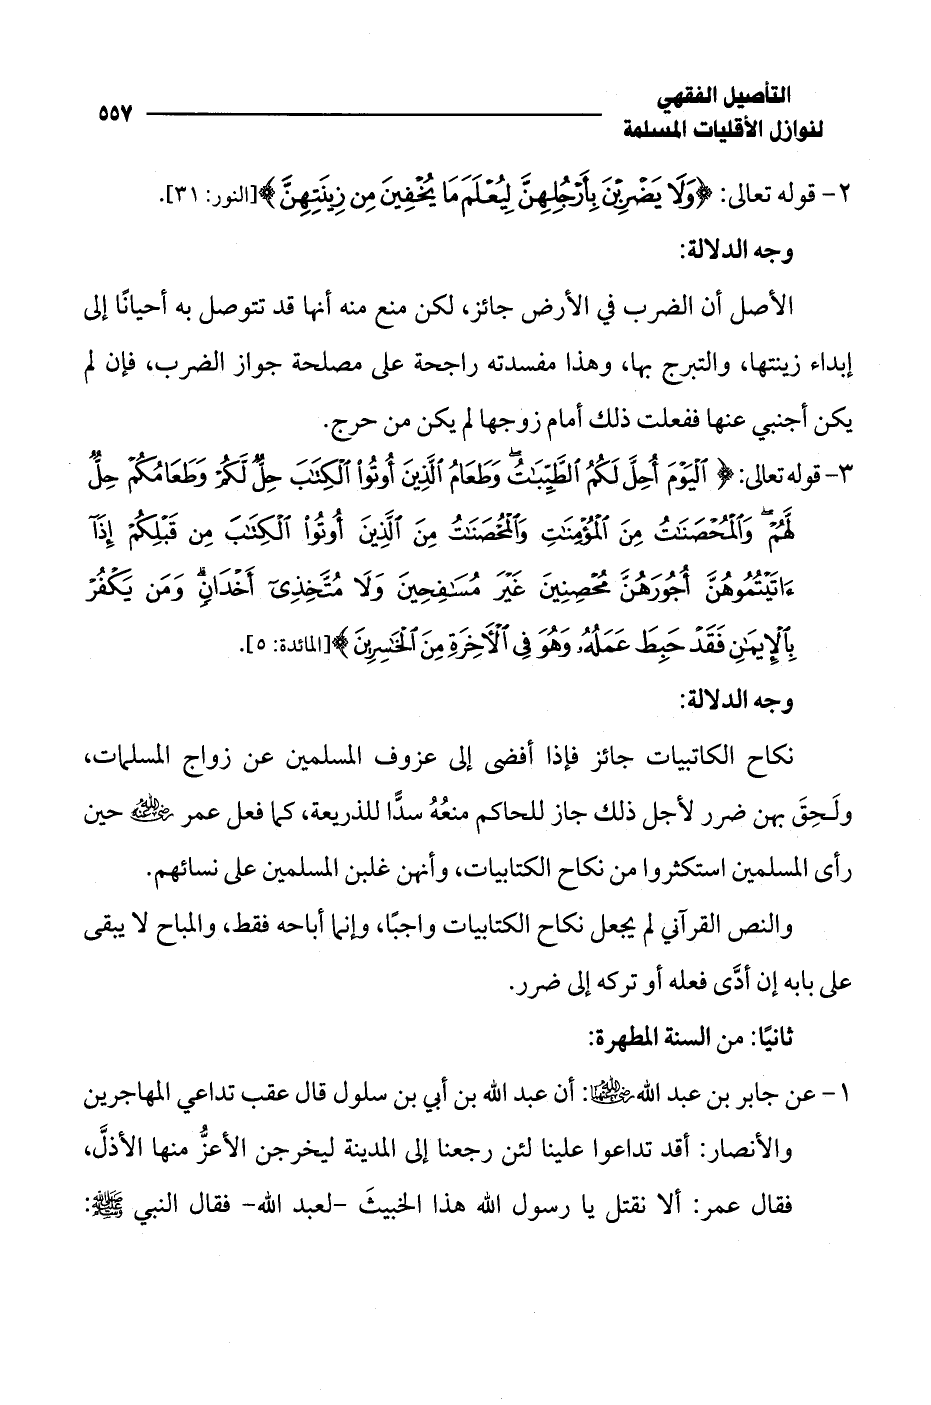 التأصيل الفقهي
لنوازل الأقليات المسلمة
٥٥٧
٢- قوله تعالى: ﴿وَلَا يَضْرِبْنَ بِأَرْجُلِهِنَّ لِيُعْلَمَ مَا يُخْفِينَ مِن زِينَتِهِنَّ﴾[النور: ٣١].
وجه الدلالة:
الأصل أن الضرب في الأرض جائز، لكن منع منه أنها قد تتوصل به أحيانًا إلى
إبداء زينتها، والتبرج بها، وهذا مفسدته راجحة على مصلحة جواز الضرب، فإن لم
يكن أجنبي عنها ففعلت ذلك أمام زوجها لم يكن من حرج.
٣- قوله تعالى: ﴿ٱلْيَوْمَ أُحِلَّ لَكُمُ ٱلطَّيِّبَٰتُ ۖ وَطَعَامُ ٱلَّذِينَ أُوتُوا۟ ٱلْكِتَٰبَ حِلٌّ لَّكُمْ وَطَعَامُكُمْ حِلٌّ
لَّهُمْ ۖ وَٱلْمُحْصَنَٰتُ مِنَ ٱلْمُؤْمِنَٰتِ وَٱلْمُحْصَنَٰتُ مِنَ ٱلَّذِينَ أُوتُوا۟ ٱلْكِتَٰبَ مِن قَبْلِكُمْ إِذَآ
ءَاتَيْتُمُوهُنَّ أُجُورَهُنَّ مُحْصِنِينَ غَيْرَ مُسَٰفِحِينَ وَلَا مُتَّخِذِىٓ أَخْدَانٍ ۗ وَمَن يَكْفُرْ
بِٱلْإِيمَٰنِ فَقَدْ حَبِطَ عَمَلُهُۥ وَهُوَ فِى ٱلْءَاخِرَةِ مِنَ ٱلْخَٰسِرِينَ﴾[المائدة: ٥].
وجه الدلالة:
نكاح الكاتبيات جائز فإذا أفضى إلى عزوف المسلمين عن زواج المسلمات،
ولَحِقَ بهن ضرر لأجل ذلك جاز للحاكم منعُهُ سدًّا للذريعة، كما فعل عمر رضي الله عنه حين
رأى المسلمين استكثروا من نكاح الكتابيات، وأنهن غلبن المسلمين على نسائهم.
والنص القرآني لم يجعل نكاح الكتابيات واجبًا، وإنما أباحه فقط، والمباح لا يبقى
على بابه إن أدَّى فعله أو تركه إلى ضرر.
ثانيًا: من السنة المطهرة:
١- عن جابر بن عبد الله رضي الله عنهما: أن عبد الله بن أبي بن سلول قال عقب تداعي المهاجرين
والأنصار: أقد تداعوا علينا لئن رجعنا إلى المدينة ليخرجن الأعزُّ منها الأذلَّ،
فقال عمر: ألا نقتل يا رسول الله هذا الخبيثَ -لعبد الله- فقال النبي ﷺ: